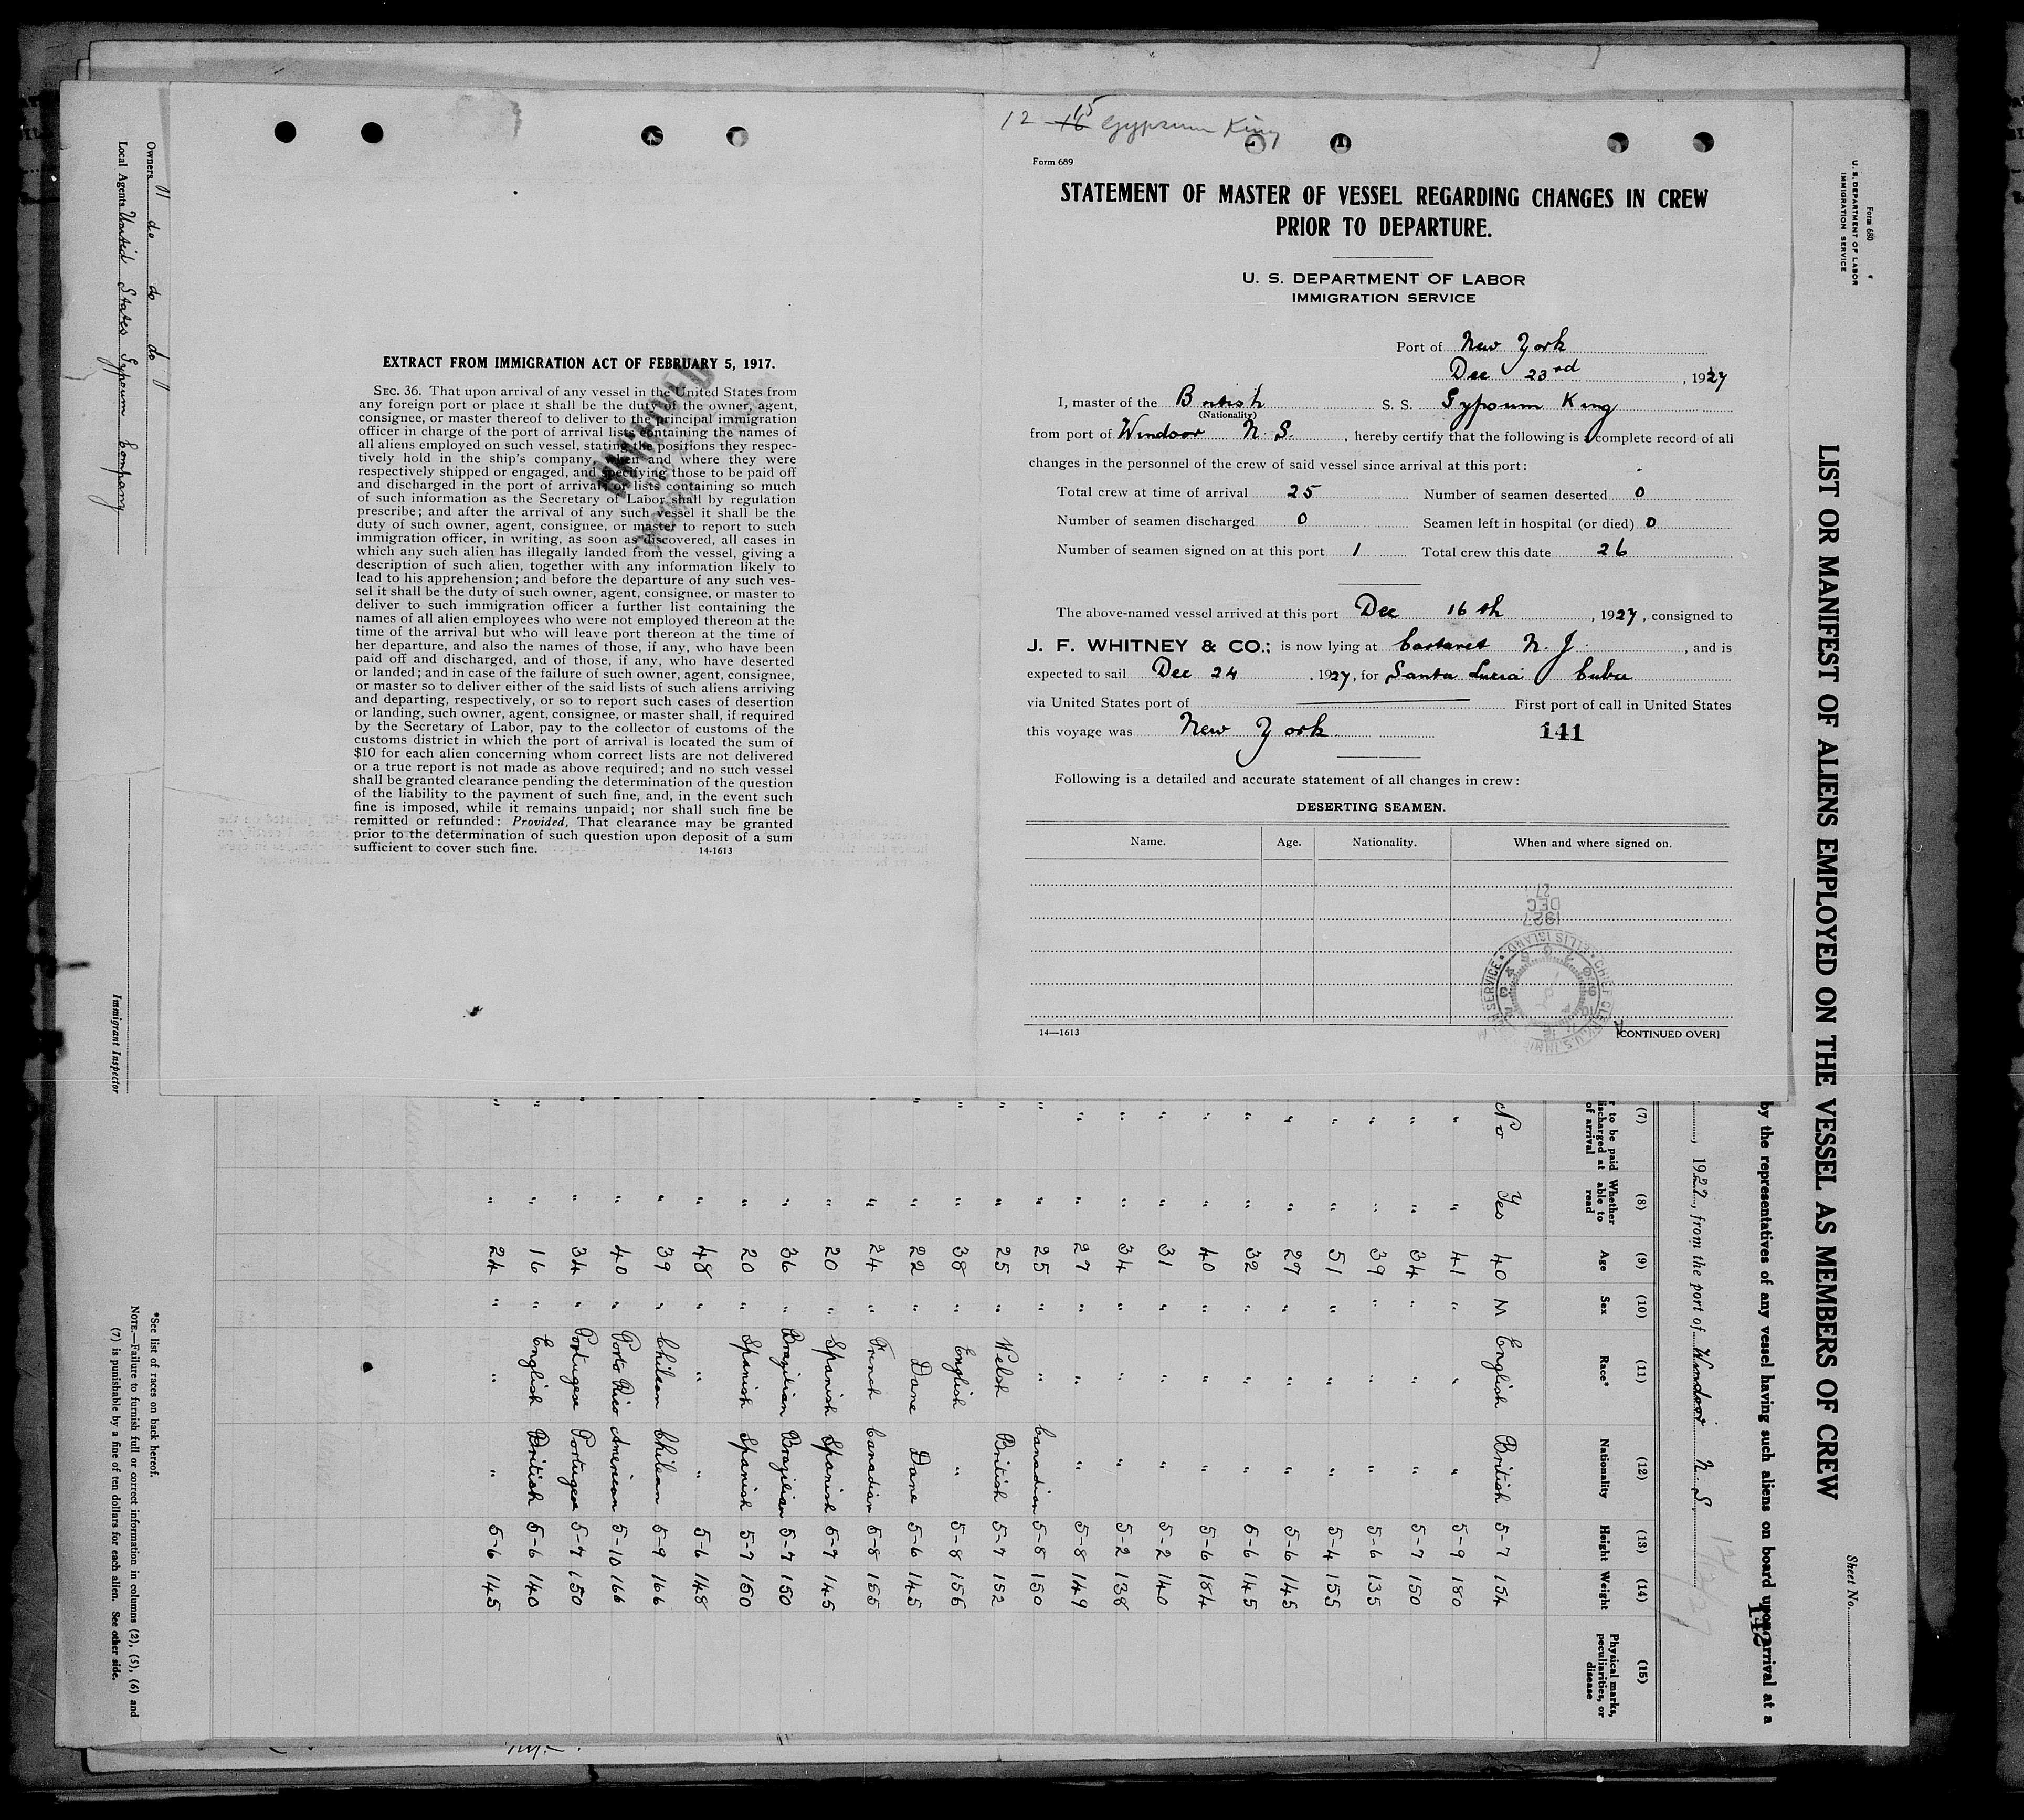 12 16 15 Gypsum King
Form 689
STATEMENT OF MASTER OF VESSEL REGARDING CHANGES IN CREW
PRIOR TO DEPARTURE.
U. S. DEPARTMENT OF LABOR
IMMIGRATION SERVICE
Port of New York
Dec 23rd, 1927
I, master of the British S. S. Gypsum King
(Nationality)
from port of Windsor N. S., hereby certify that the following is a complete record of all
changes in the personnel of the crew of said vessel since arrival at this port:
Total crew at time of arrival 25 Number of seamen deserted 0
Number of seamen discharged 0 Seamen left in hospital (or died) 0
Number of seamen signed on at this port 1 Total crew this date 26
The above-named vessel arrived at this port Dec 16th, 1927, consigned to
J. F. WHITNEY & CO.; is now lying at Carteret N. J., and is
expected to sail Dec 24, 1927, for Santa Lucia Cuba
via United States port of First port of call in United States
this voyage was New York 141
Following is a detailed and accurate statement of all changes in crew:
DESERTING SEAMEN.
Name. Age. Nationality. When and where signed on.
1927
DEC
27
14—1613 [CONTINUED OVER]
EXTRACT FROM IMMIGRATION ACT OF FEBRUARY 5, 1917.
SEC. 36. That upon arrival of any vessel in the United States from
any foreign port or place it shall be the duty of the owner, agent,
consignee, or master thereof to deliver to the principal immigration
officer in charge of the port of arrival lists containing the names of
all aliens employed on such vessel, stating the positions they respec-
tively hold in the ship's company, when and where they were
respectively shipped or engaged, and specifying those to be paid off
and discharged in the port of arrival; or lists containing so much
of such information as the Secretary of Labor shall by regulation
prescribe; and after the arrival of any such vessel it shall be the
duty of such owner, agent, consignee, or master to report to such
immigration officer, in writing, as soon as discovered, all cases in
which any such alien has illegally landed from the vessel, giving a
description of such alien, together with any information likely to
lead to his apprehension; and before the departure of any such ves-
sel it shall be the duty of such owner, agent, consignee, or master to
deliver to such immigration officer a further list containing the
names of all alien employees who were not employed thereon at the
time of the arrival but who will leave port thereon at the time of
her departure, and also the names of those, if any, who have been
paid off and discharged, and of those, if any, who have deserted
or landed; and in case of the failure of such owner, agent, consignee,
or master so to deliver either of the said lists of such aliens arriving
and departing, respectively, or so to report such cases of desertion
or landing, such owner, agent, consignee, or master shall, if required
by the Secretary of Labor, pay to the collector of customs of the
customs district in which the port of arrival is located the sum of
$10 for each alien concerning whom correct lists are not delivered
or a true report is not made as above required; and no such vessel
shall be granted clearance pending the determination of the question
of the liability to the payment of such fine, and, in the event such
fine is imposed, while it remains unpaid; nor shall such fine be
remitted or refunded: Provided, That clearance may be granted
prior to the determination of such question upon deposit of a sum
sufficient to cover such fine.
14-1613
Form 680
U. S. DEPARTMENT OF LABOR
IMMIGRATION SERVICE
Sheet No.
LIST OR MANIFEST OF ALIENS EMPLOYED ON THE VESSEL AS MEMBERS OF CREW
by the representatives of any vessel having such aliens on board upon arrival at a
142
, 1927, from the port of Windsor N. S.
(7) (8) (9) (10) (11) (12) (13) (14) (15)
r to be paid discharged at of arrival Whether able to read Age Sex Race* Nationality Height Weight Physical marks, peculiarities, or disease
No Yes 40 M English British 5-7 154
" " 41 " " " 5-9 180
" " 34 " " " 5-7 150
" " 39 " " " 5-6 135
" " 51 " " " 5-4 155
" " 27 " " " 5-6 145
" " 32 " " " 5-6 145
" " 40 " " " 5-6 184
" " 31 " " " 5-2 140
" " 34 " " " 5-2 138
" " 27 " " " 5-8 149
" " 25 " " Canadian 5-8 150
" " 25 " Welsh British 5-7 152
" " 38 " English " 5-8 156
" " 22 " Dane Dane 5-6 145
" " 24 " French Canadian 5-8 155
" " 20 " Spanish Spanish 5-7 145
" " 36 " Brazilian Brazilian 5-7 150
" " 20 " Spanish Spanish 5-7 150
" " 48 " " " 5-6 148
" " 39 " Chilean Chilean 5-9 166
" " 40 " Porto Rico American 5-10 166
" " 34 " Portugese Portugese 5-7 150
" " 16 " English British 5-6 140
" " 24 " " " 5-6 145
Owners " do do do "
Local Agents United States Gypsum Company
Immigrant Inspector
*See list of races on back hereof.
NOTE.—Failure to furnish full or correct information in columns (2), (5), (6) and
(7) is punishable by a fine of ten dollars for each alien. See other side.